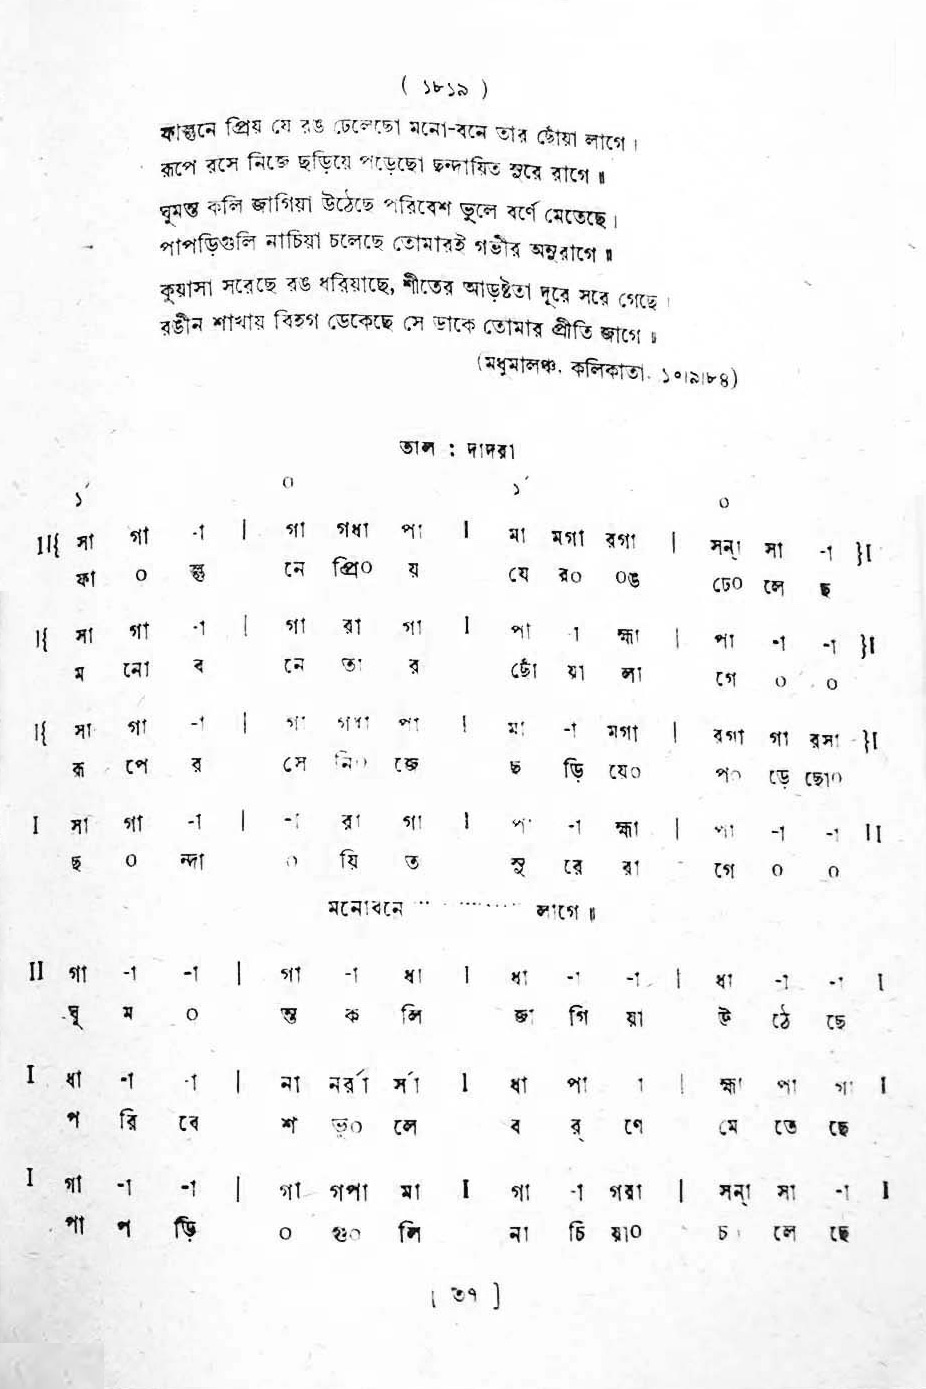 ( ১৮১৯ )
ফাল্গুনে প্রিয় যে রঙ ঢেলেছো মনো-বনে তার ছোঁয়া লাগে।
রূপে রসে নিজে ছড়িয়ে পড়েছো ছন্দায়িত সুরে রাগে॥
ঘুমন্ত কলি জাগিয়া উঠেছে পরিবেশ ভুলে বর্ণে মেতেছে।
পাপড়িগুলি নাচিয়া চলেছে তোমারই গভীর অনুরাগে॥
কুয়াসা সরেছে রঙ ধরিয়াছে, শীতের আড়ষ্টতা দূরে সরে গেছে।
রঙীন শাখায় বিহগ ডেকেছে সে ডাকে তোমার প্রীতি জাগে॥
(মধুমালঞ্চ, কলিকাতা, ১০।৯।৮৪)
তাল : দাদরা
১´ ০ ১´ ০
II{ সা গা -া | গা গধা পা I মা মগা রগা | সন্‌া সা -া }I
ফা ০ ল্গু নে প্রি০ য় যে র০ ০ঙ ঢে০ লে ছ
I{ সা গা -া | গা রা গা I পা -া হ্মা | পা -া -া }I
ম নো ব নে তা র ছোঁ য়া লা গে ০ ০
I{ সা গা -া | গা গধা পা I মা -া মগা | রগা গা রসা }I
রূ পে র সে নি০ জে ছ ড়ি য়ে০ প০ ড়ে ছো০
I সা গা -া | -া রা গা I পা -া হ্মা | পা -া -া II
ছ ০ ন্দা ০ য়ি ত সু রে রা গে ০ ০
মনোবনে ............ লাগে॥
II গা -া -া | গা -া ধা I ধা -া -া | ধা -া -া I
ঘু ম ০ ন্ত ক লি জা গি য়া উ ঠে ছে
I ধা -া -া | না নর্রা র্সা I ধা পা া | হ্মা পা গা I
প রি বে শ ভু০ লে ব র্ ণে মে তে ছে
I গা -া -া | গা গপা মা I গা -া গরা | সন্‌া সা -া I
পা প ড়ি ০ গু০ লি না চি য়া০ চ০ লে ছে
[ ৩৭ ]